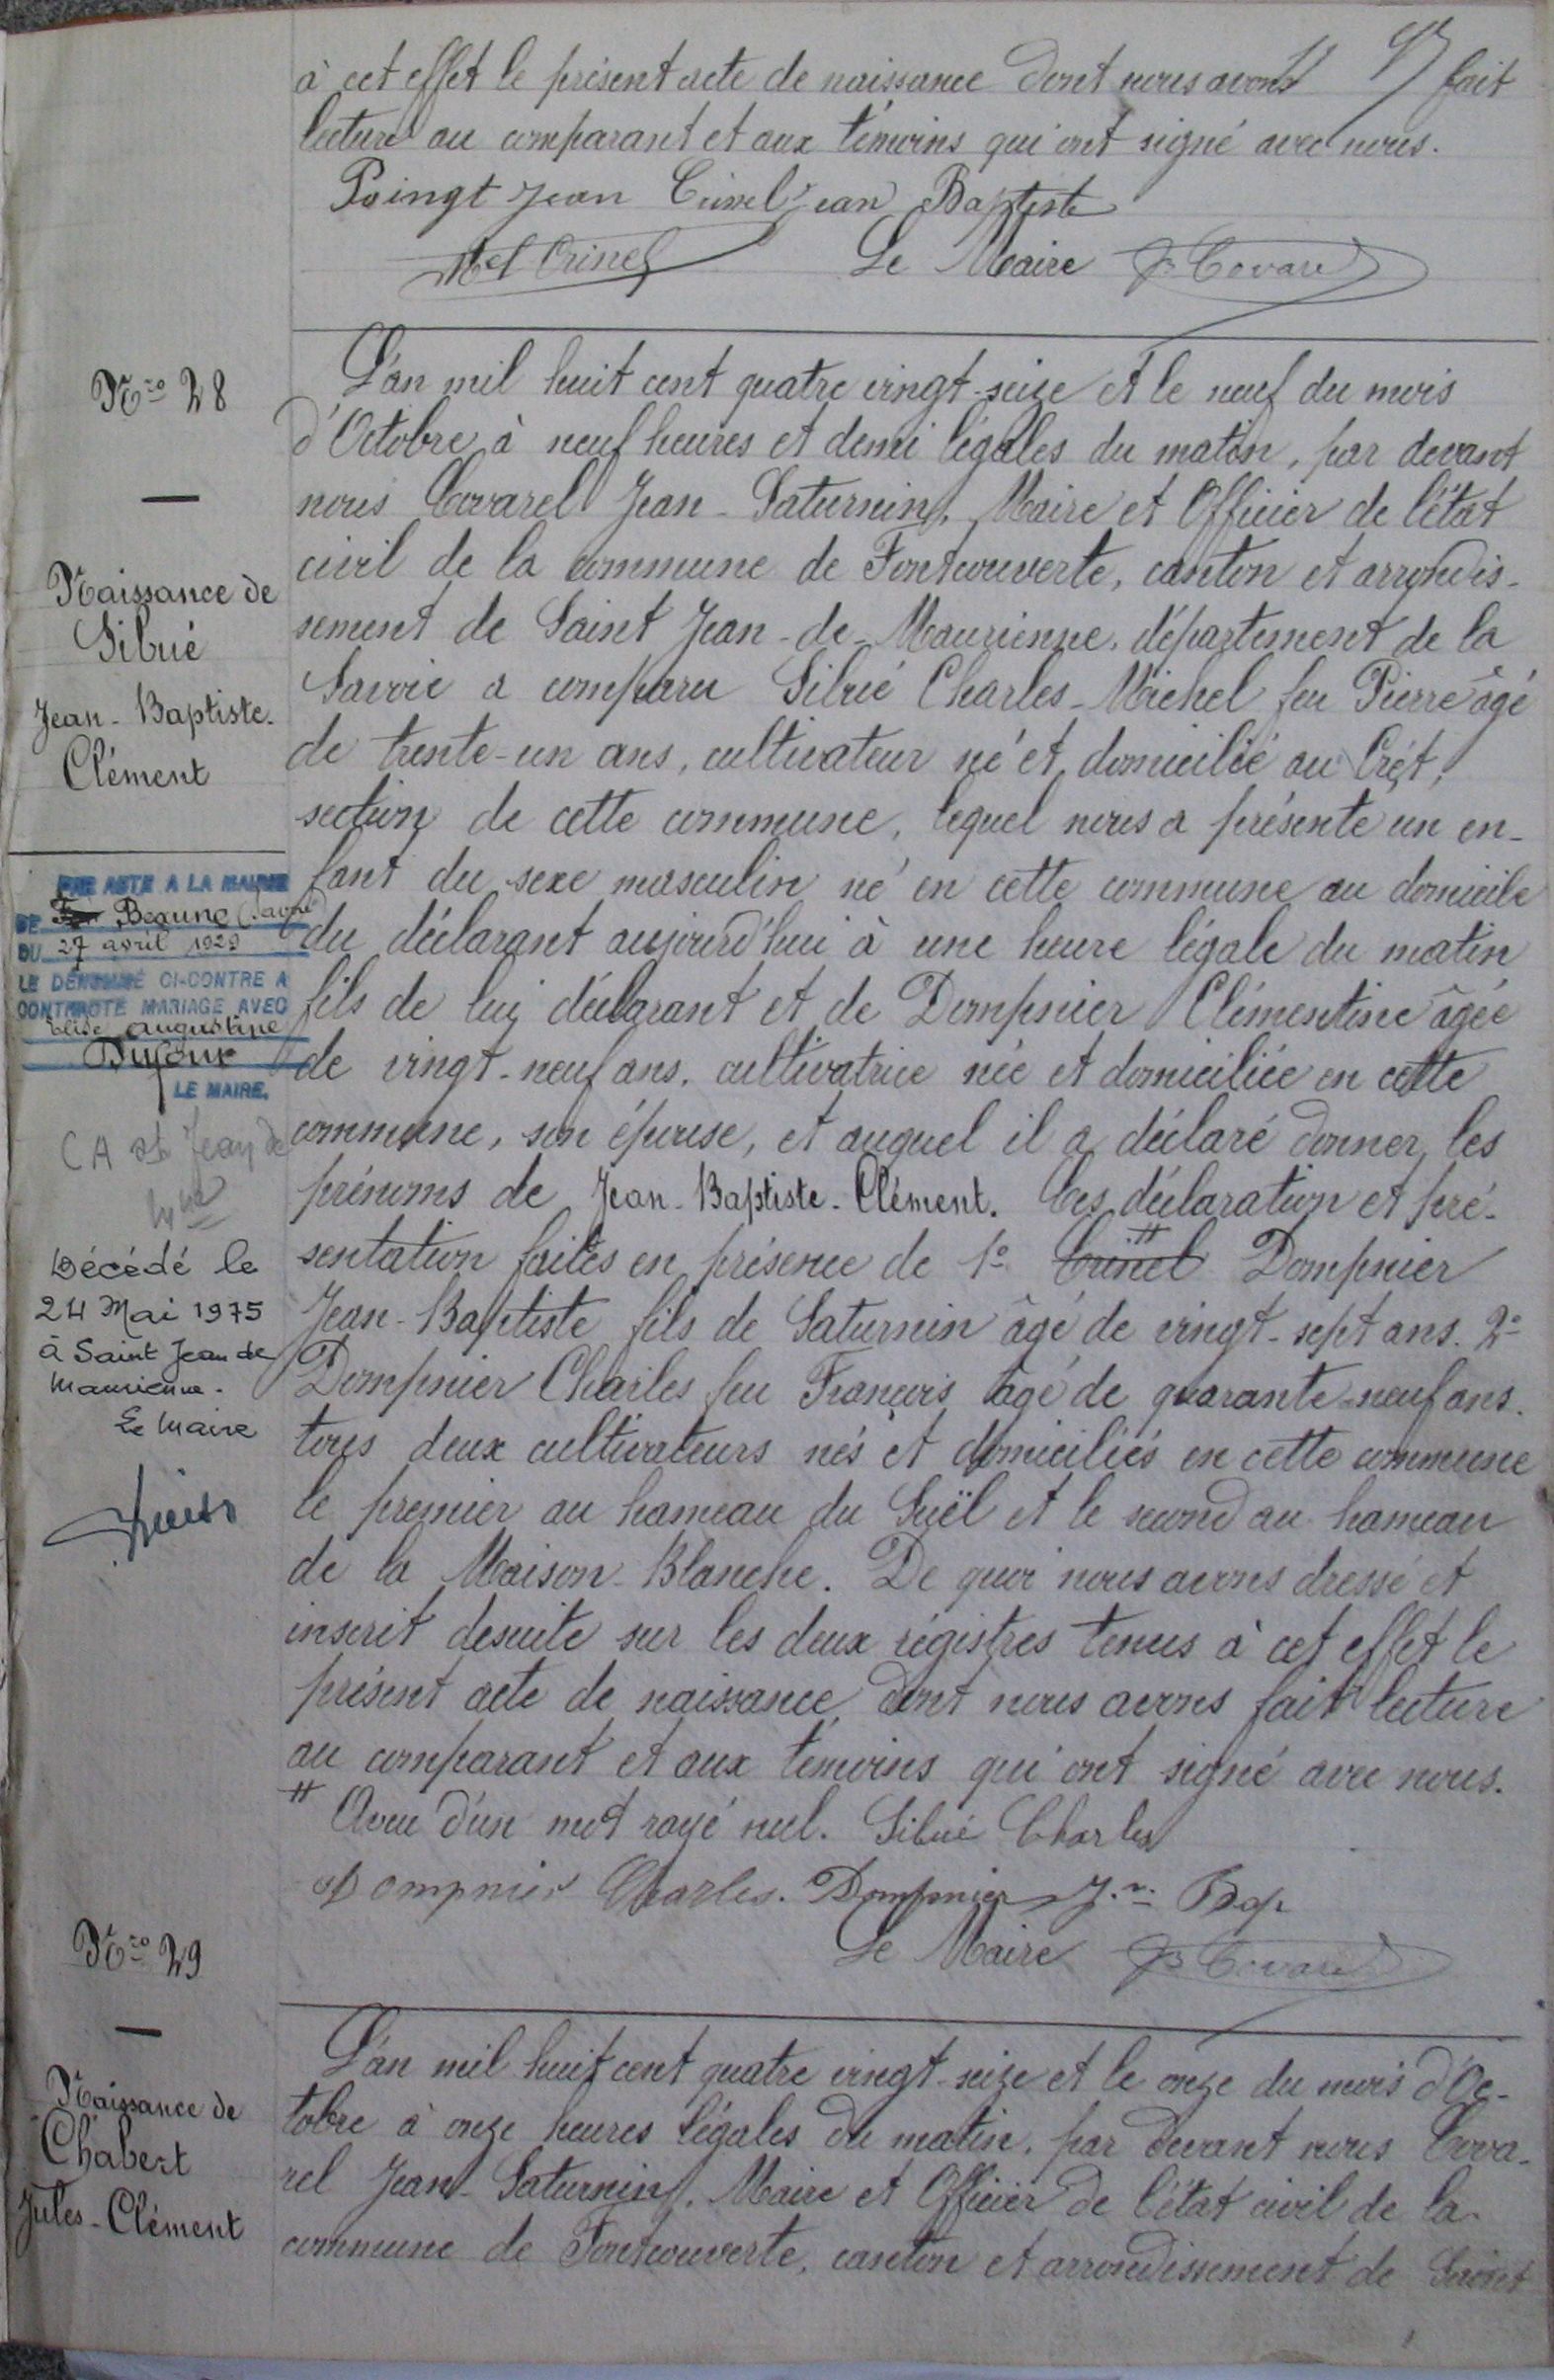 à cet effet le présent acte de naissance dont nous avons fait
lecture au comparant et aux témoins qui ont signé avec nous.
Poingt Jean Crinel Jean Baptiste
Crinel Le Maire JS Covarel
Nro 28
Naissance de
Sibué
Jean-Baptiste-
Clément
PAR ACTE A LA MAIRIE
DE Beaune (Savoie)
DU 27 avril 1929
LE DÉNOMMÉ CI-CONTRE A
CONTRACTÉ MARIAGE AVEC
Elise Augustine
Dufour
LE MAIRE.
CA St Jean de
Mne
Décédé le
24 Mai 1975
à Saint Jean de
Maurienne.
Le Maire
L'an mil huit cent quatre vingt-seize et le neuf du mois
d'Octobre à neuf heures et demi légales du matin, par devant
nous Covarel Jean-Saturnin, Maire et Officier de l'état
civil de la commune de Fontcouverte, canton et arrondis-
sement de Saint Jean-de-Maurienne, département de la
Savoie a comparu Sibué Charles-Michel feu Pierre âgé
de trente-un ans, cultivateur né et domicilié au Crêt,
section de cette commune, lequel nous a présenté un en-
fant du sexe masculin né en cette commune au domicile
du déclarant aujourd'hui à une heure légale du matin
fils de lui déclarant et de Dompnier Clémentine âgée
de vingt-neuf ans, cultivatrice née et domiciliée en cette
commune, son épouse, et auquel il a déclaré donner les
prénoms de Jean-Baptiste-Clément. Ces déclaration et pré-
sentation faites en présence de 1º Crinel # Dompnier
Jean-Baptiste fils de Saturnin âgé de vingt-sept ans. 2º
Dompnier Charles feu François âgé de quarante-neuf ans.
tous deux cultivateurs nés et domiciliés en cette commune
le premier au hameau du Suël et le second au hameau
de la Maison-Blanche. De quoi nous avons dressé et
inscrit desuite sur les deux régistres tenus à cet effet le
présent acte de naissance, dont nous avons fait lecture
au comparant et aux témoins qui ont signé avec nous.
# Aveu d'un mot rayé nul. Sibué Charles
Dompnier Charles. Dompnier J.n Bap
Le Maire JS Covarel
Nro 29
Naissance de
Chabert
Jules-Clément
L'an mil huit cent quatre vingt-seize et le onze du mois d'Oc-
tobre à onze heures légales du matin, par devant nous Cova-
rel Jean-Saturnin, Maire et Officier de l'état civil de la
commune de Fontcouverte, canton et arrondissement de Saint